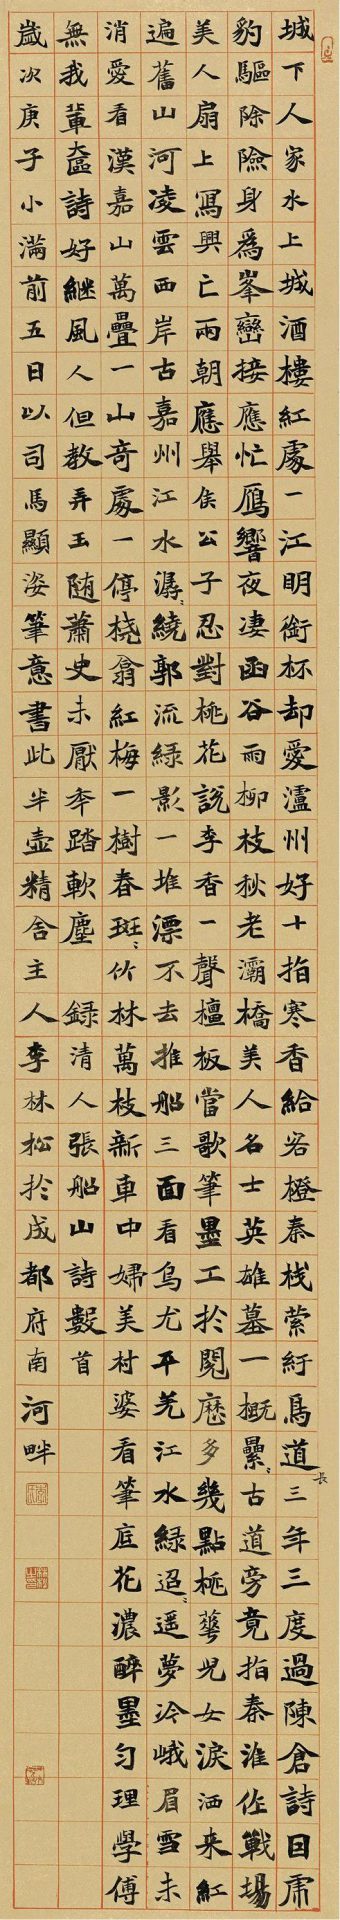 城下人家水上城酒樓紅處一江明銜杯却愛瀘州好十指寒香給客橙秦棧縈紆鳥道長三年三度過陳倉詩因虎
豹驅除險身爲峯巒接應忙鴈響夜凄函谷雨柳枝秋老灞橋美人名士英雄墓一概纍ゝ古道旁竟指秦淮作戰場
美人扇上寫興亡兩朝應舉侯公子忍對桃花說李香一聲檀板當歌筆墨工於閱歷多幾點桃華兒女淚洒来紅
遍舊山河凌雲西岸古嘉州江水潺ゝ繞郭流綠影一堆漂不去推船三面看烏尤平羌江水綠迢ゝ遥夢冷峨眉雪未
消愛看漢嘉山萬疊一山奇處一停橈翁紅梅一樹春斑ゝ竹林萬枝新車中婦美村婆看筆底花濃醉墨勻理學傅
無我輩奩詩好継風人但教弄玉随蕭史未厭年踏軟塵 録清人張船山詩數首
歲次庚子小滿前五日以司馬顯姿筆意書此半壺精舍主人李林松於成都府南河畔